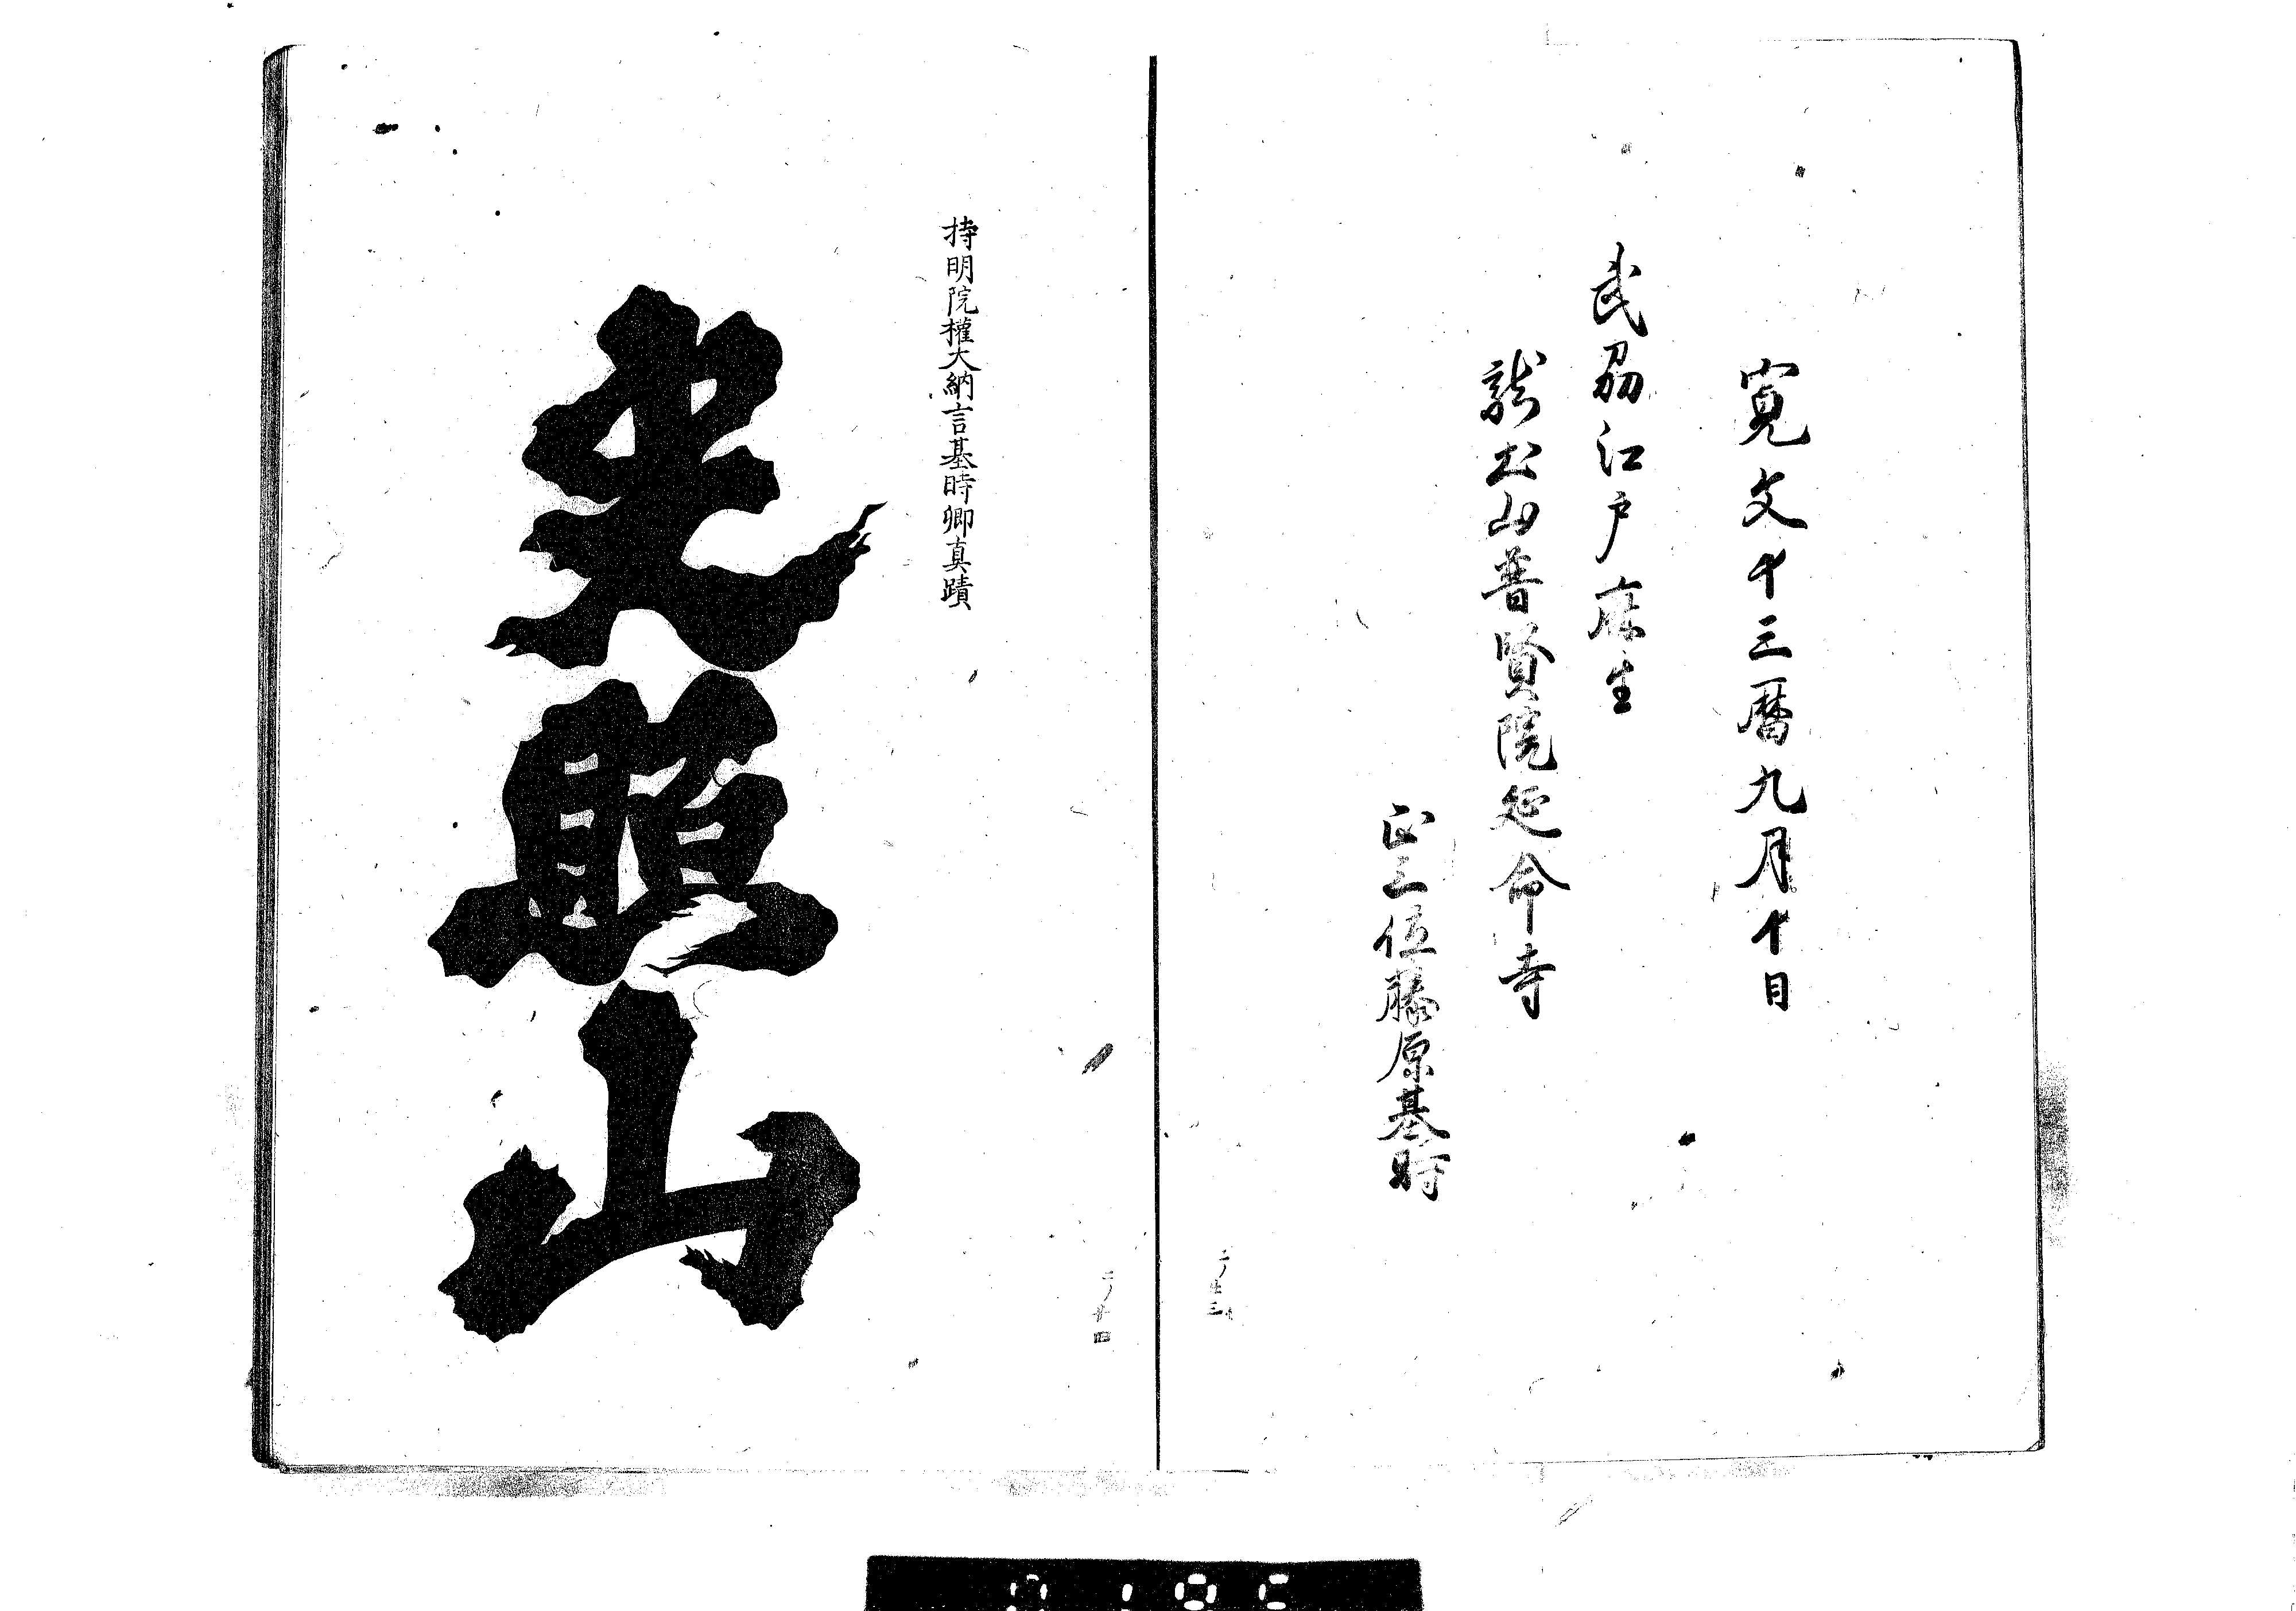 寛文十三暦九月十日
武刕江戸麻生
龍土山普賢院延命寺
正三位藤原基時
二ノ廿三
二ノ廿四
持明院權大納言基時卿真蹟
照山